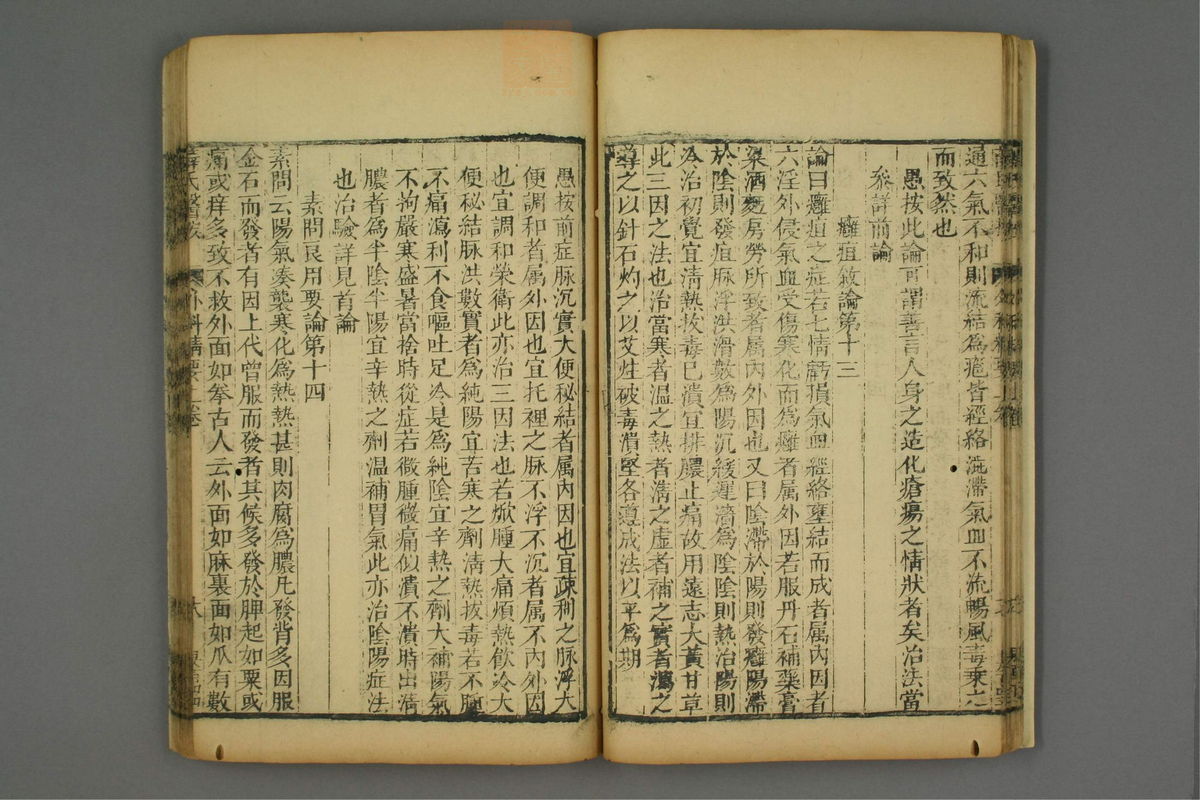 通六氣不和則流結爲癰皆經絡澁滯氣血不流暢風毒乗之
而致然也
愚按此論可謂善言人身之造化瘡瘍之情狀者矣治法當
叅詳前論
癰疽敘論第十三
論曰癰疽之症若七情虧損氣血經絡壅結而成者属内因者
六淫外侵氣血受傷寒化而爲癰者属外因若服丹石補藥膏
粱酒麪房勞所致者属不内外因也又曰陰滯於陽則發癰陽滯
於陰則發疽脉浮洪滑數爲陽沉緩遲濇爲陰陰則熱治陽則
冷治初覺宜清熱拔毒已潰宜排膿止痛故用遠志大黃甘草
此三因之法也治當寒者温之熱者清之虚者補之實者瀉之
導之以針石灼之以艾炷破毒潰堅各遵成法以平爲期
愚按前症脉沉實大便秘結者属内因也宜疎利之脉浮大
便調和者属外因也宜托裡之脉不浮不沉者属不内外因
也宜調和榮衛此亦治三因法也若焮腫大痛煩熱飲冷大
便秘結脉洪數實者爲純陽宜苦寒之劑清熱拔毒若不腫
不痛瀉利不食嘔吐足冷是爲純陰宜辛熱之劑大補陽氣
不拘嚴寒盛暑當捨時從症若微腫微痛似潰不潰時出清
膿者爲半陰半陽宜辛熱之劑温補胃氣此亦治陰陽症法
也治驗詳見首論
素問艮用要論第十四
素問云陽氣凑襲寒化爲熱熱甚則肉腐爲膿凡發背多因服
金石而發者有因上代曾服而發者其候多發於胛起如粟或
痛或痒多致不救外面如拳古人云外面如麻裏面如爪有數
薛氏醫按 外科精要上卷